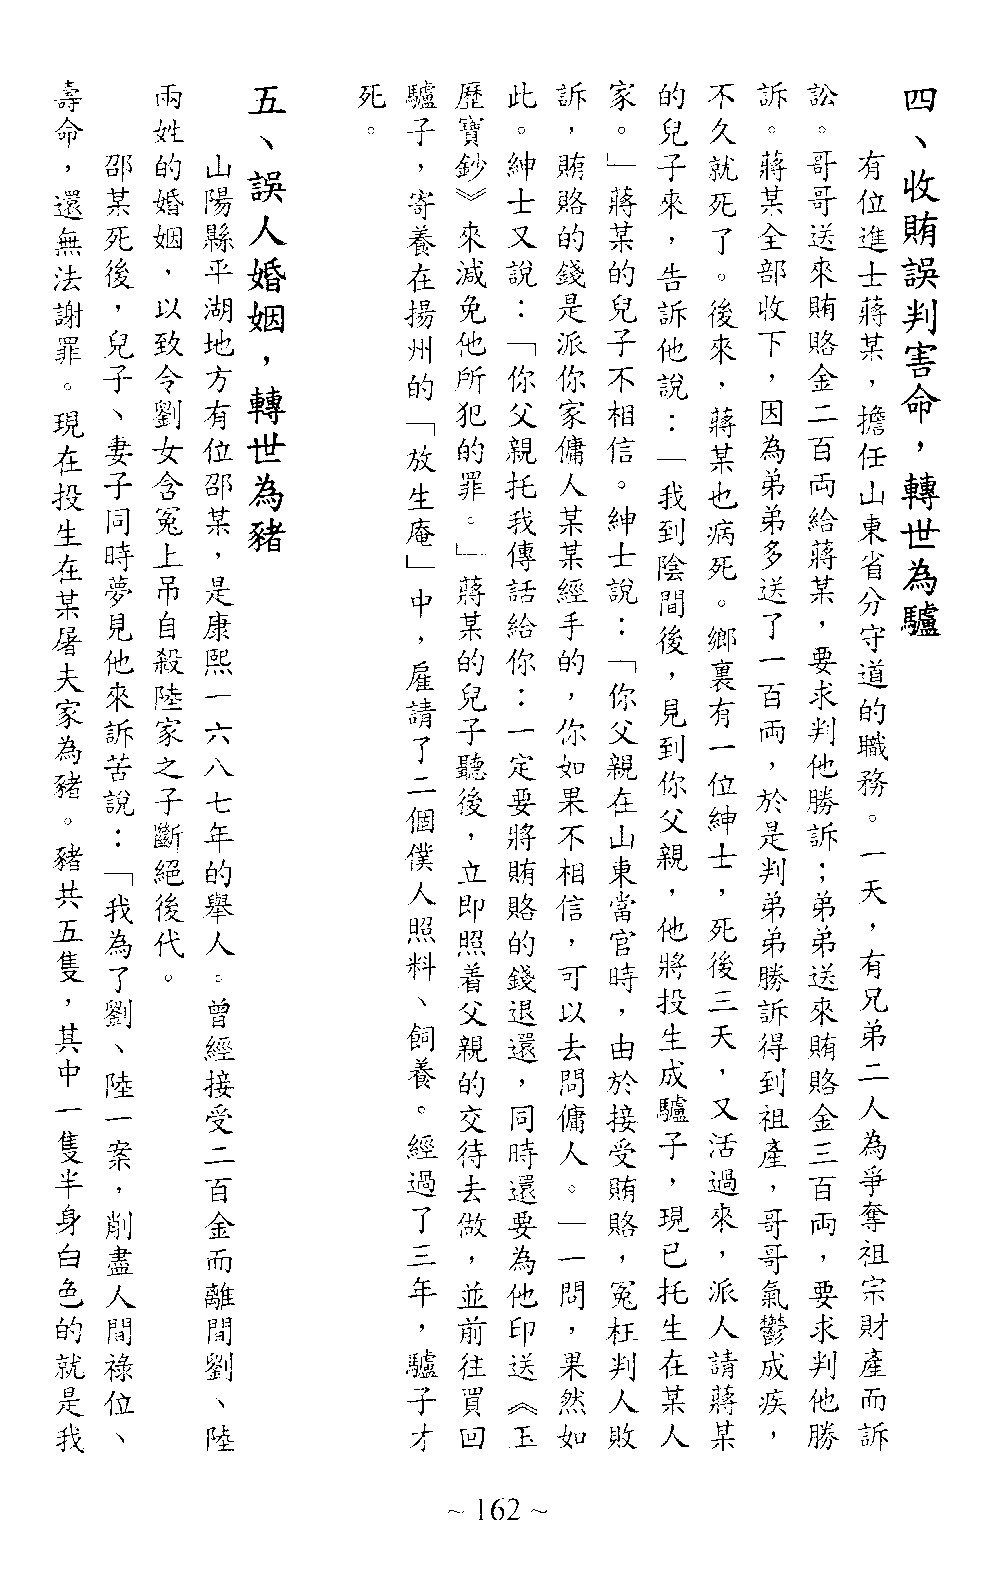 四、收賄誤判害命，轉世為驢
有位進士蔣某，擔任山東省分守道的職務。一天，有兄弟二人為爭奪祖宗財產而訴
訟。哥哥送來賄賂金二百両給蔣某，要求判他勝訴；弟弟送來賄賂金三百両，要求判他勝
訴。蔣某全部收下，因為弟弟多送了一百両，於是判弟弟勝訴得到祖產，哥哥氣鬱成疾，
不久就死了。後來，蔣某也病死。鄉裏有一位紳士，死後三天，又活過來，派人請蔣某
的兒子來，告訴他說：「我到陰間後，見到你父親，他將投生成驢子，現已托生在某人
家。」蔣某的兒子不相信。紳士說：「你父親在山東當官時，由於接受賄賂，冤枉判人敗
訴，賄賂的錢是派你家傭人某某經手的，你如果不相信，可以去問傭人。」一問，果然如
此。紳士又說：「你父親托我傳話給你：一定要將賄賂的錢退還，同時還要為他印送《玉
歷寶鈔》來減免他所犯的罪。」蔣某的兒子聽後，立即照着父親的交待去做，並前往買回
驢子，寄養在揚州的「放生庵」中，雇請了二個僕人照料、飼養。經過了三年，驢子才
死。
五、誤人婚姻，轉世為豬
山陽縣平湖地方有位邵某，是康熙一六八七年的舉人。曾經接受二百金而離間劉、陸
兩姓的婚姻，以致令劉女含冤上吊自殺陸家之子斷絕後代。
邵某死後，兒子、妻子同時夢見他來訴苦說：「我為了劉、陸一案，削盡人間祿位、
壽命，還無法謝罪。現在投生在某屠夫家為豬。豬共五隻，其中一隻半身白色的就是我
~ 162 ~